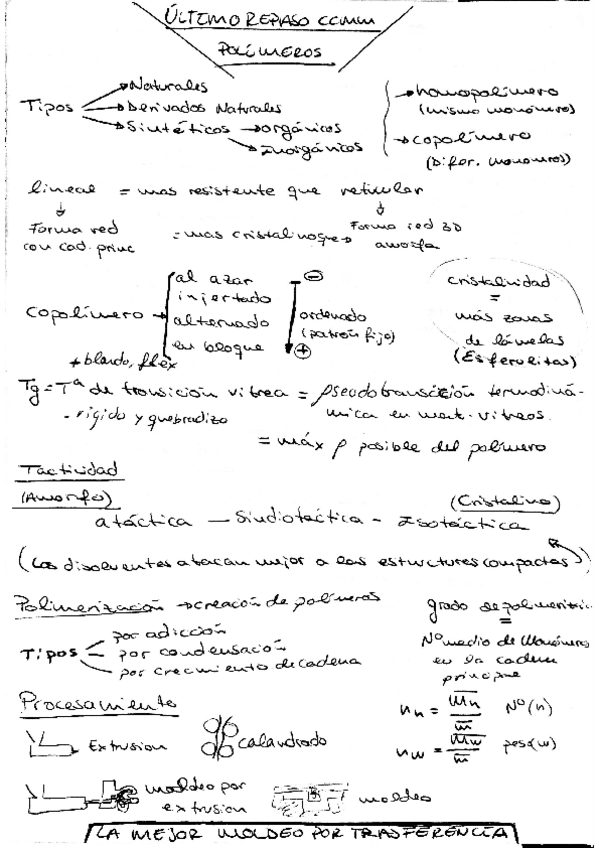 ÚLTIMO REPASO CCMM
POLÍMEROS
Tipos
Naturales
Derivados Naturales
Sintéticos → orgánicos
Inorgánicos
→ homopolímero
(mismo monómero)
→ copolímero
(Difer. monomeros)
lineal = mas resistente que reticular
Forma red
con cad. princ
= mas cristalino que →
Forma red 3D
amorfa
Copolímero →
al azar
injertado
alternado
en bloque
⊖
ordenado
(patrón fijo)
⊕
cristalinidad
=
más zonas
de lámelas
(Esferulitas)
+ blando, flex
Tg = Tª de transición vítrea = pseudotransición termodiná-
mica en mat. vitreos.
- rígido y quebradizo
= máx ρ posible del polímero
Tactividad
(Amorfo)
(Cristalino)
atáctica — Sindiotáctica - Isotáctica
(Los disolventes atacan mejor a las estructures compactas)
Polimerización → creación de polímeros
Tipos
por adicción
por condensación
por crecimiento de cadena
grado de polimeriz.
=
Nº medio de Monómeros
en la cadena
principal
Procesamiento
nn = Mn / m Nº(n)
nw = Mw / m peso(w)
Extrusion
calandrado
moldeo por
extrusion
moldeo
LA MEJOR MOLDEO POR TRASFERENCIA